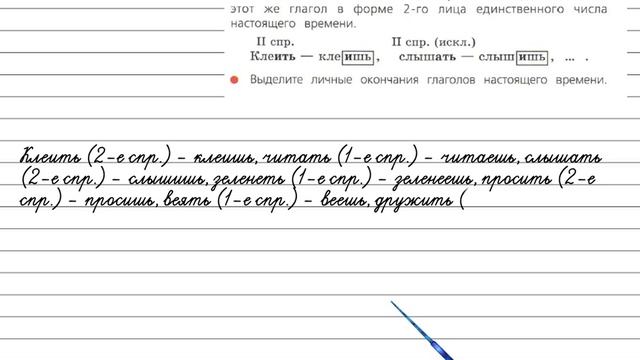 этот же глагол в форме 2-го лица единственного числа
настоящего времени.
II спр. II спр. (искл.)
Клеить — клеишь, слышать — слышишь, ... .
Выделите личные окончания глаголов настоящего времени.
Клеить (2-е спр.) - клеишь, читать (1-е спр.) - читаешь, слышать
(2-е спр.) - слышишь, зеленеть (1-е спр.) - зеленеешь, просить (2-е
спр.) - просишь, веять (1-е спр.) - веешь, дружить (